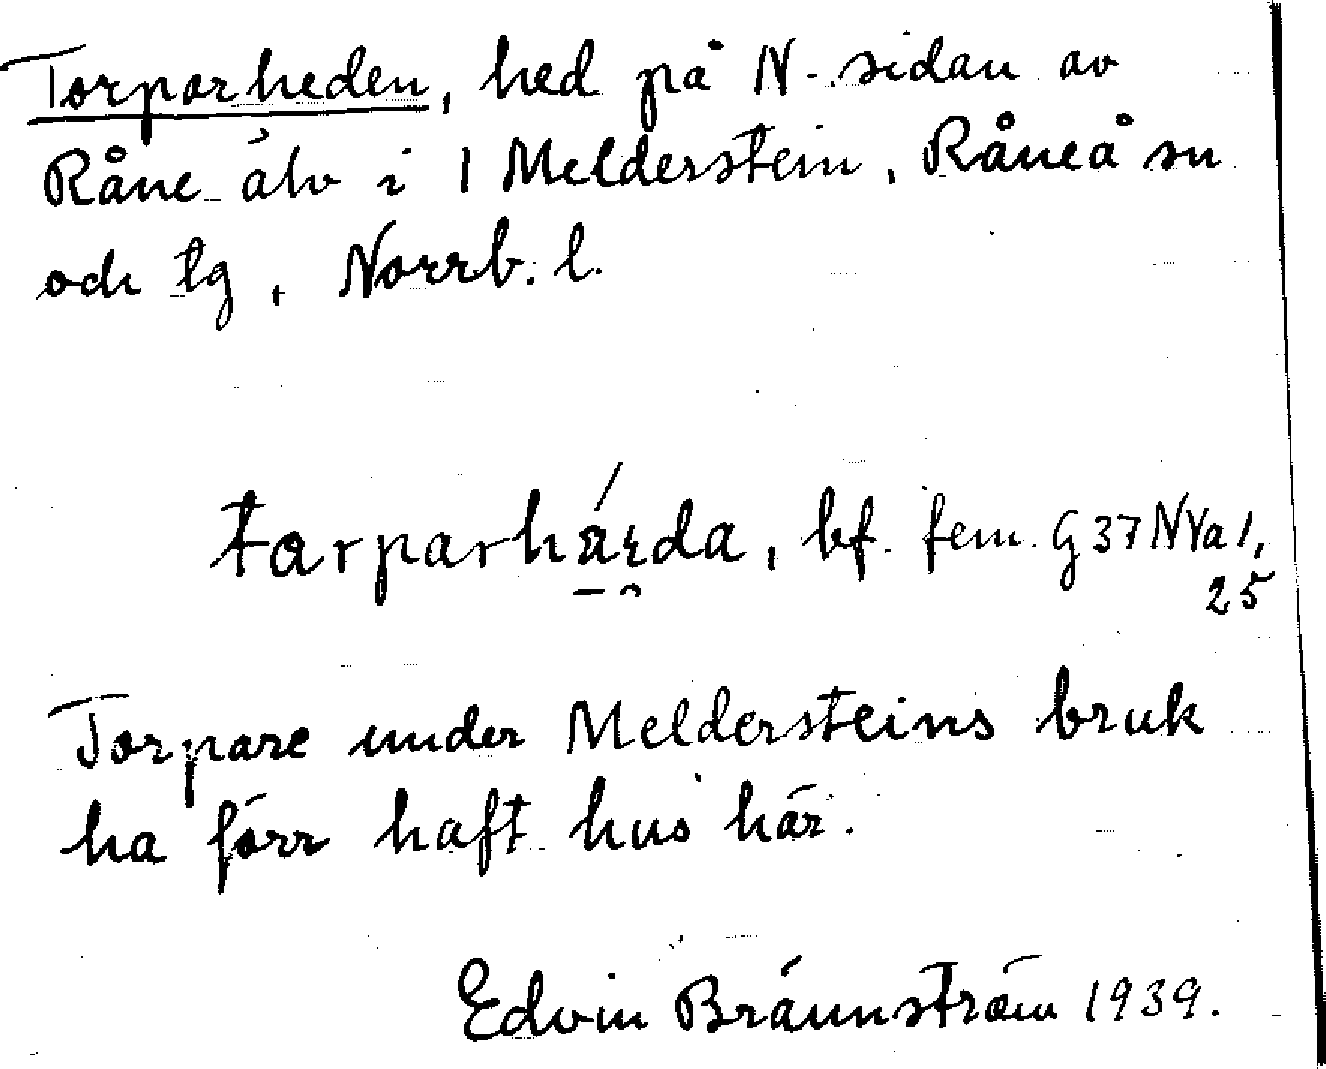 Torparheden, hed på N-sidan av
Råne älv i 1 Melderstein, Råneå sn
och tg, Norrb. l.
tarparhä́ɪda, bf. fem. G 37 N Va 1,
25
Torpare under Meldersteins bruk
ha förr haft hus här.
Edvin Brännström 1939.